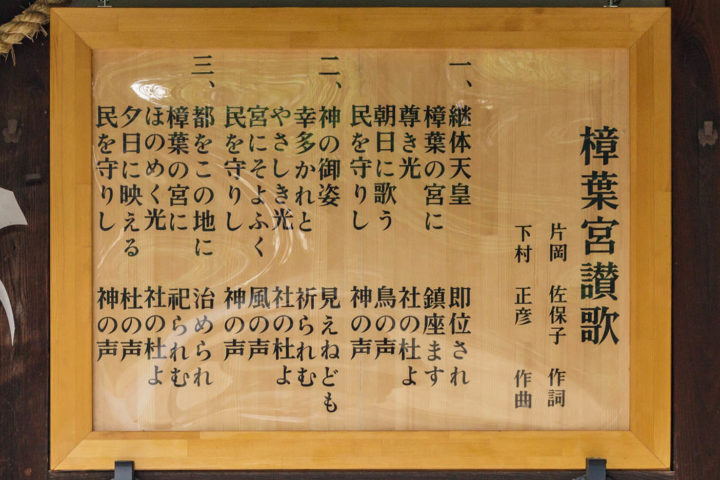 樟葉宮讃歌
片岡 佐保子 作詞
下村 正彦 作曲
一、継体天皇 即位され
樟葉の宮に 鎮座ます
尊き光 社の杜よ
朝日に歌う 鳥の声
民を守りし 神の声
二、神の御姿 見えねども
幸多かれと 祈られむ
やさしき光 社の杜よ
宮にそよふく 風の声
民を守りし 神の声
三、都をこの地に 治められ
樟葉の宮に 祀られむ
ほのめく光 社の杜よ
夕日に映える 杜の声
民を守りし 神の声